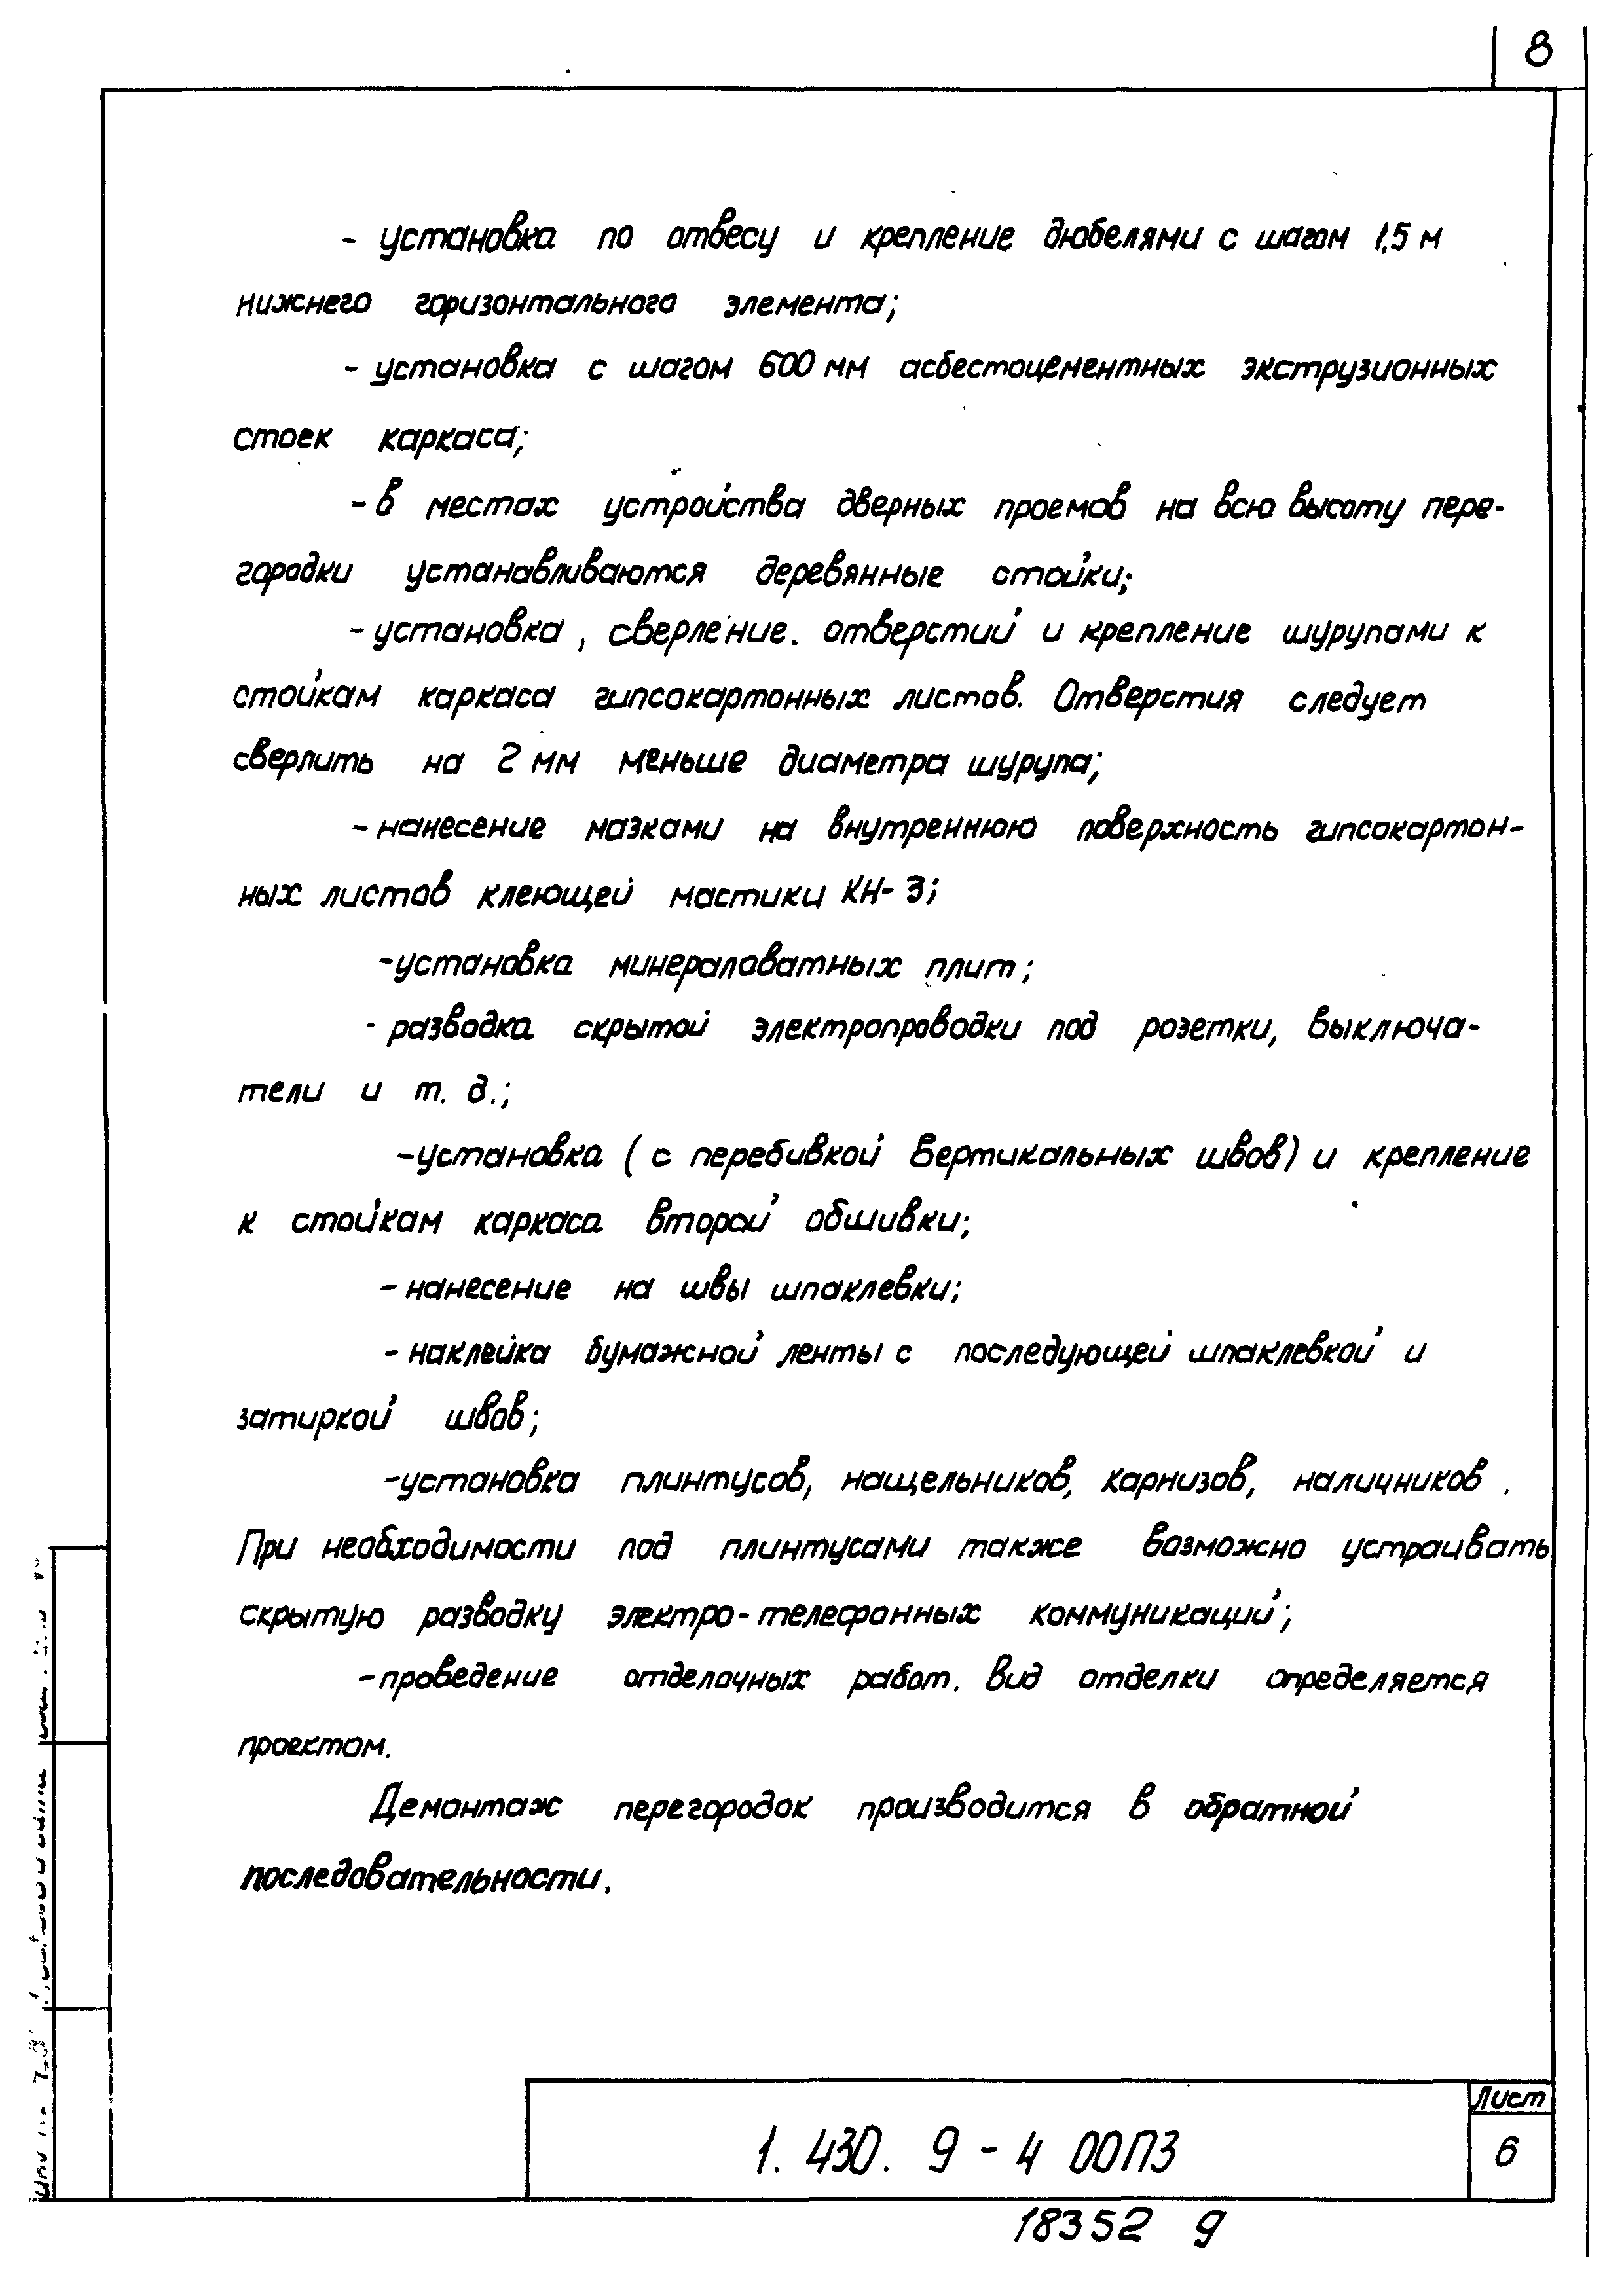 8
- установка по отвесу и крепление дюбелями с шагом 1,5 м
нижнего горизонтального элемента;
- установка с шагом 600 мм асбестоцементных экструзионных
стоек каркаса;
- в местах устройства дверных проемов на всю высоту пере-
городки устанавливаются деревянные стойки;
- установка, сверление. отверстий и крепление шурупами к
стойкам каркаса гипсокартонных листов. Отверстия следует
сверлить на 2 мм меньше диаметра шурупа;
- нанесение мазками на внутреннюю поверхность гипсокартон-
ных листов клеющей мастики КН-3;
- установка минераловатных плит;
- разводка скрытой электропроводки под розетки, выключа-
тели и т. д.;
- установка (с перебивкой вертикальных швов) и крепление
к стойкам каркаса второй обшивки;
- нанесение на швы шпаклевки;
- наклейка бумажной ленты с последующей шпаклевкой и
затиркой швов;
- установка плинтусов, нащельников, карнизов, наличников.
При необходимости под плинтусами также возможно устраивать
скрытую разводку электро-телефонных коммуникаций;
- проведение отделочных работ. Вид отделки определяется
проектом.
Демонтаж перегородок производится в обратной
последовательности.
1. 430. 9 - 4 00ПЗ
Лист
6
18352 9